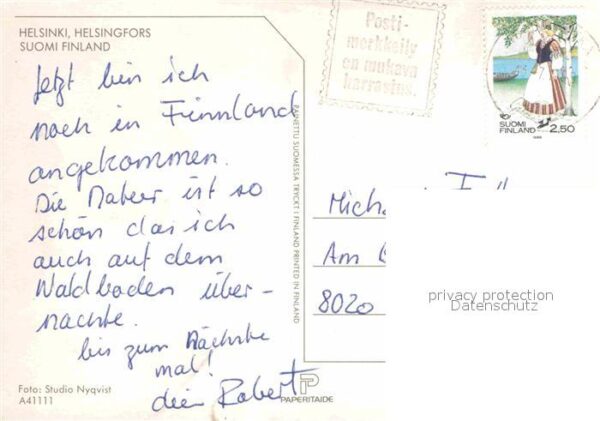 HELSINKI, HELSINGFORS
SUOMI FINLAND
Jetzt bin ich
noch in Finnland
angekommen.
Die Natuer ist so
schön das ich
auch auf dem
Waldboden über-
nachte.
bis zum Nächste
mal!
dein Robert
Foto: Studio Nyqvist
A41111
PAINETTU SUOMESSA TRYCKT I FINLAND PRINTED IN FINLAND
PAPERITAIDE
Posti-
merkkeily
on mukava
harrastus.
SUOMI
FINLAND 2,50
Mich
Am
8020
privacy protection
Datenschutz